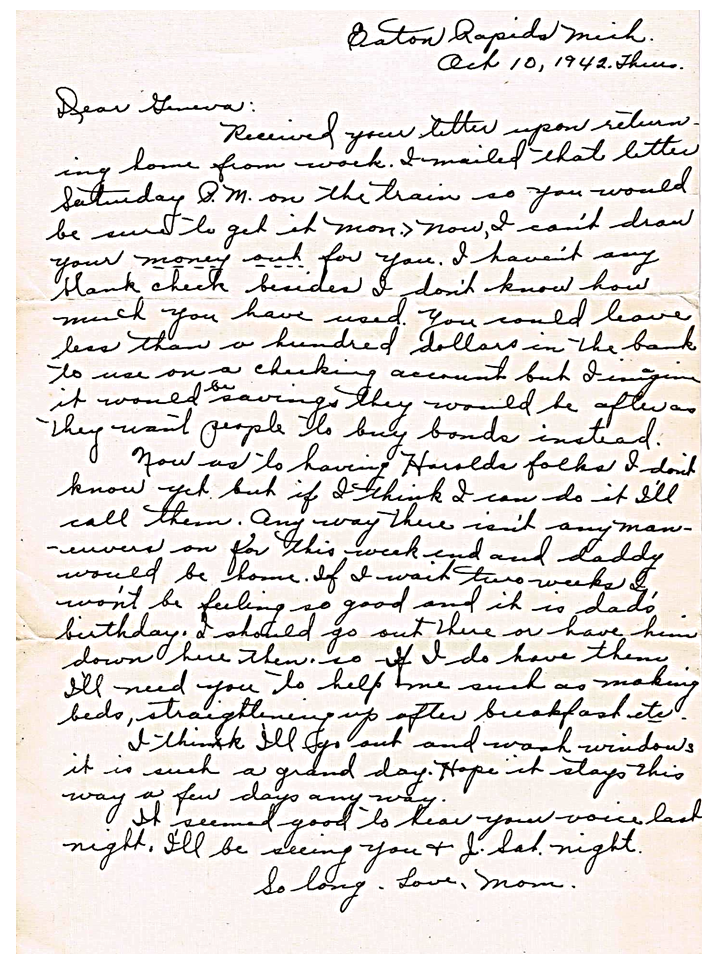 Eaton Rapids Mich.
Oct 10, 1942. Thurs.
Dear Geneva:
Received your letter upon return-
ing home from work. I mailed that letter
Saturday P.M. on the train so you would
be sure to get it Mon. Now, I can't draw
your money out for you. I haven't any
blank check besides I don't know how
much you have used. You could leave
less than a hundred dollars in the bank
to use on a checking account but I imagine
it would be savings they would be after as
they want people to buy bonds instead.
Now as to having Harolds folks I don't
know yet but if I think I can do it I'll
call them. Any way there isn't any man-
-euvers on for this week end and daddy
would be home. If I wait two weeks I
won't be feeling so good and it is dad's
birthday. I should go out there or have him
down here then. so If I do have them
I'll need you to help me such as making
beds, straightening up after breakfast etc.
I think I'll go out and wash windows
it is such a grand day. Hope it stays this
way a few days any way.
It seemed good to hear your voice last
night. I'll be seeing you & J. Sat. night.
So long. Love, Mom.